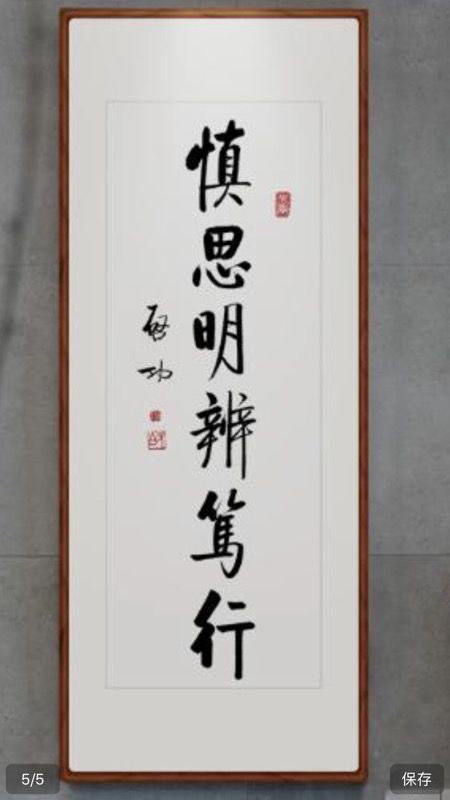 慎思明辨笃行
启功
5/5
保存